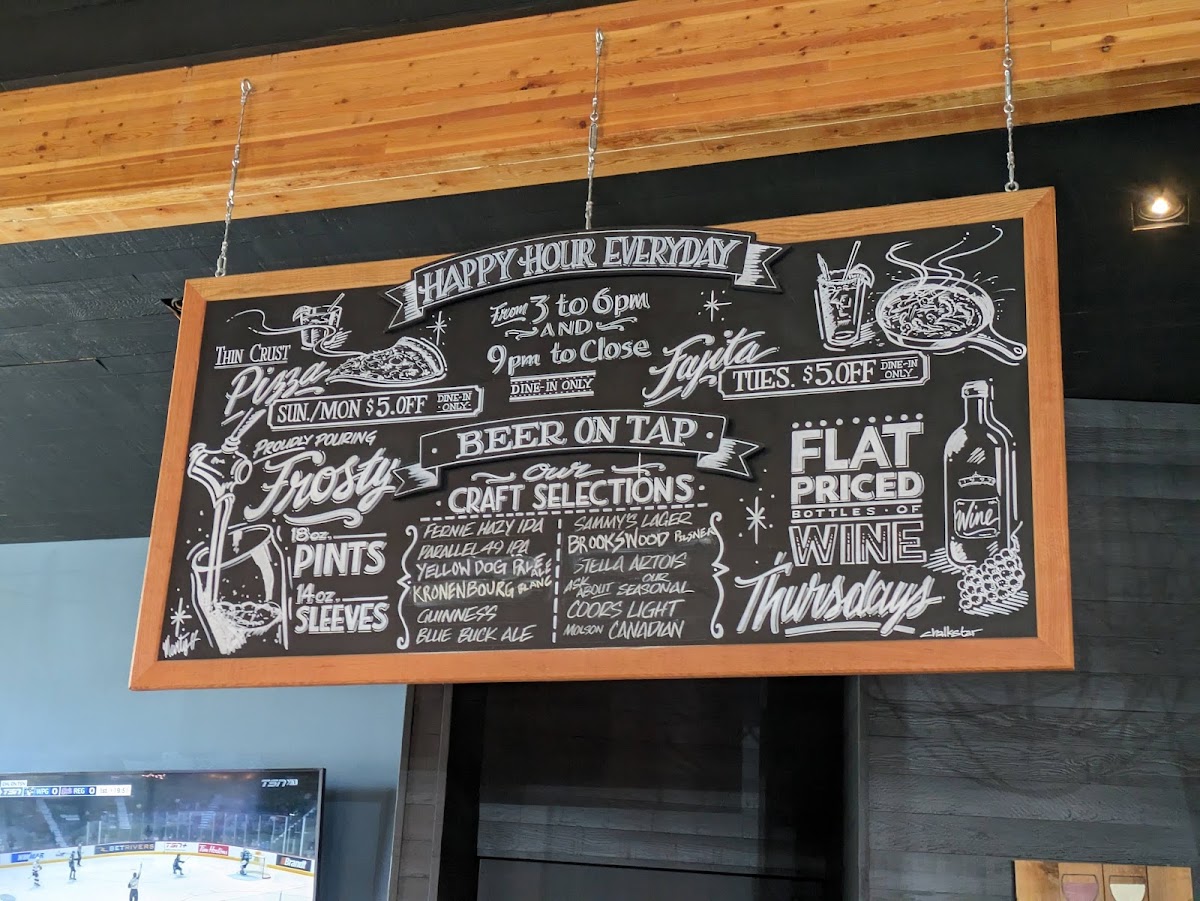 HAPPY HOUR EVERYDAY
From 3 to 6pm
AND
9pm to Close
DINE-IN ONLY
THIN CRUST
Pizza
SUN./MON $5.OFF DINE-IN ONLY
Fajita
TUES. $5.OFF DINE-IN ONLY
PROUDLY POURING
Frosty
18oz.
PINTS
14oz.
SLEEVES
BEER ON TAP
our
CRAFT SELECTIONS
FERNIE HAZY IDA
PARALLEL 49 IPA
YELLOW DOG PALE ALE
KRONENBOURG BLANC
GUINNESS
BLUE BUCK ALE
SAMMY'S LAGER
BROOKSWOOD PILSNER
STELLA ARTOIS
ASK ABOUT OUR SEASONAL
COORS LIGHT
MOLSON CANADIAN
FLAT
PRICED
BOTTLES · OF
WINE
Thursdays
Wine
chalkstar
TSN
TSN WPG 0 REG 0 1st
BETRIVERS
Tim Hortons
Brandt